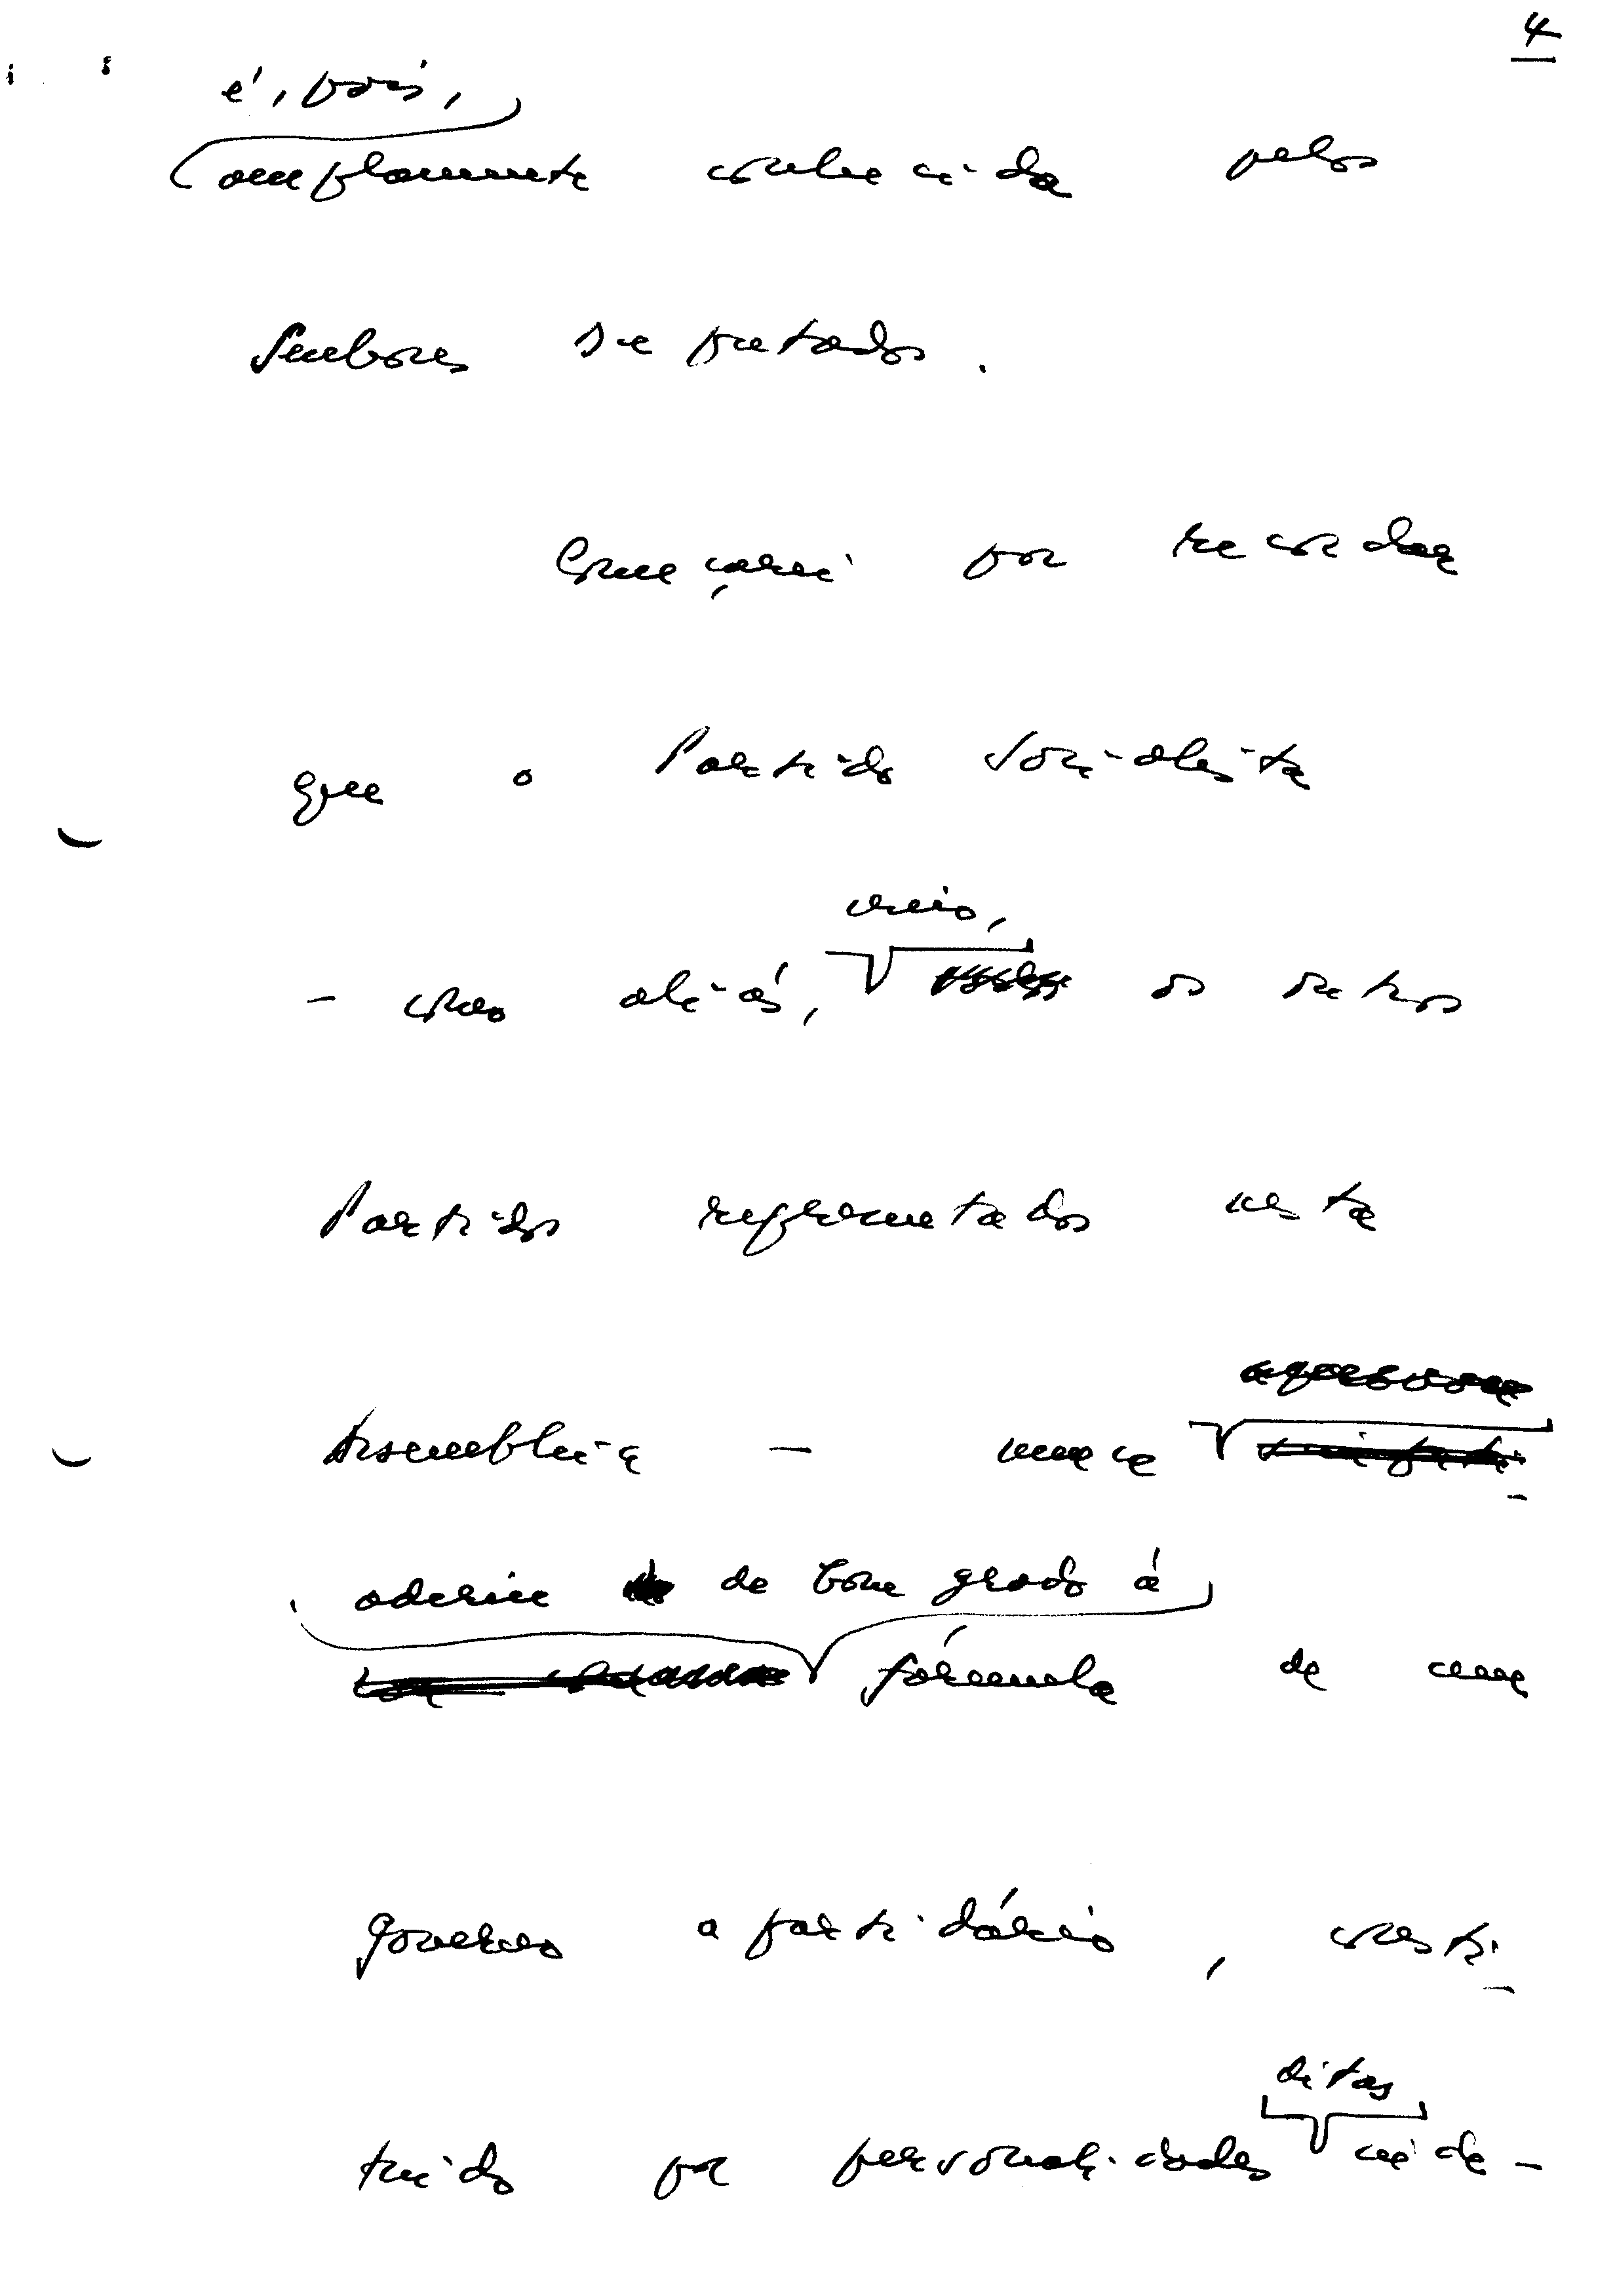 4
é, pois,
amplamente conhecida pelos
Senhores Deputados.
Começarei por recordar
que o Partido Socialista
creio,
- como aliás, os outros
Partidos representados nesta
Assembleia - nunca
aderiu de bom grado à
fórmula de um
governo apartidário, consti-
ditas
tuído por personalidades inde-